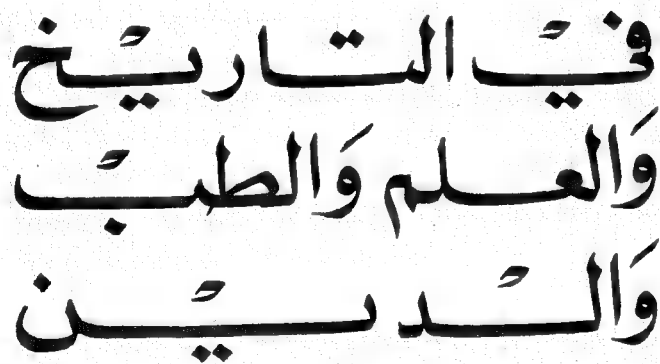 في التاريخ
وَالعلم وَالطب
وَالدين